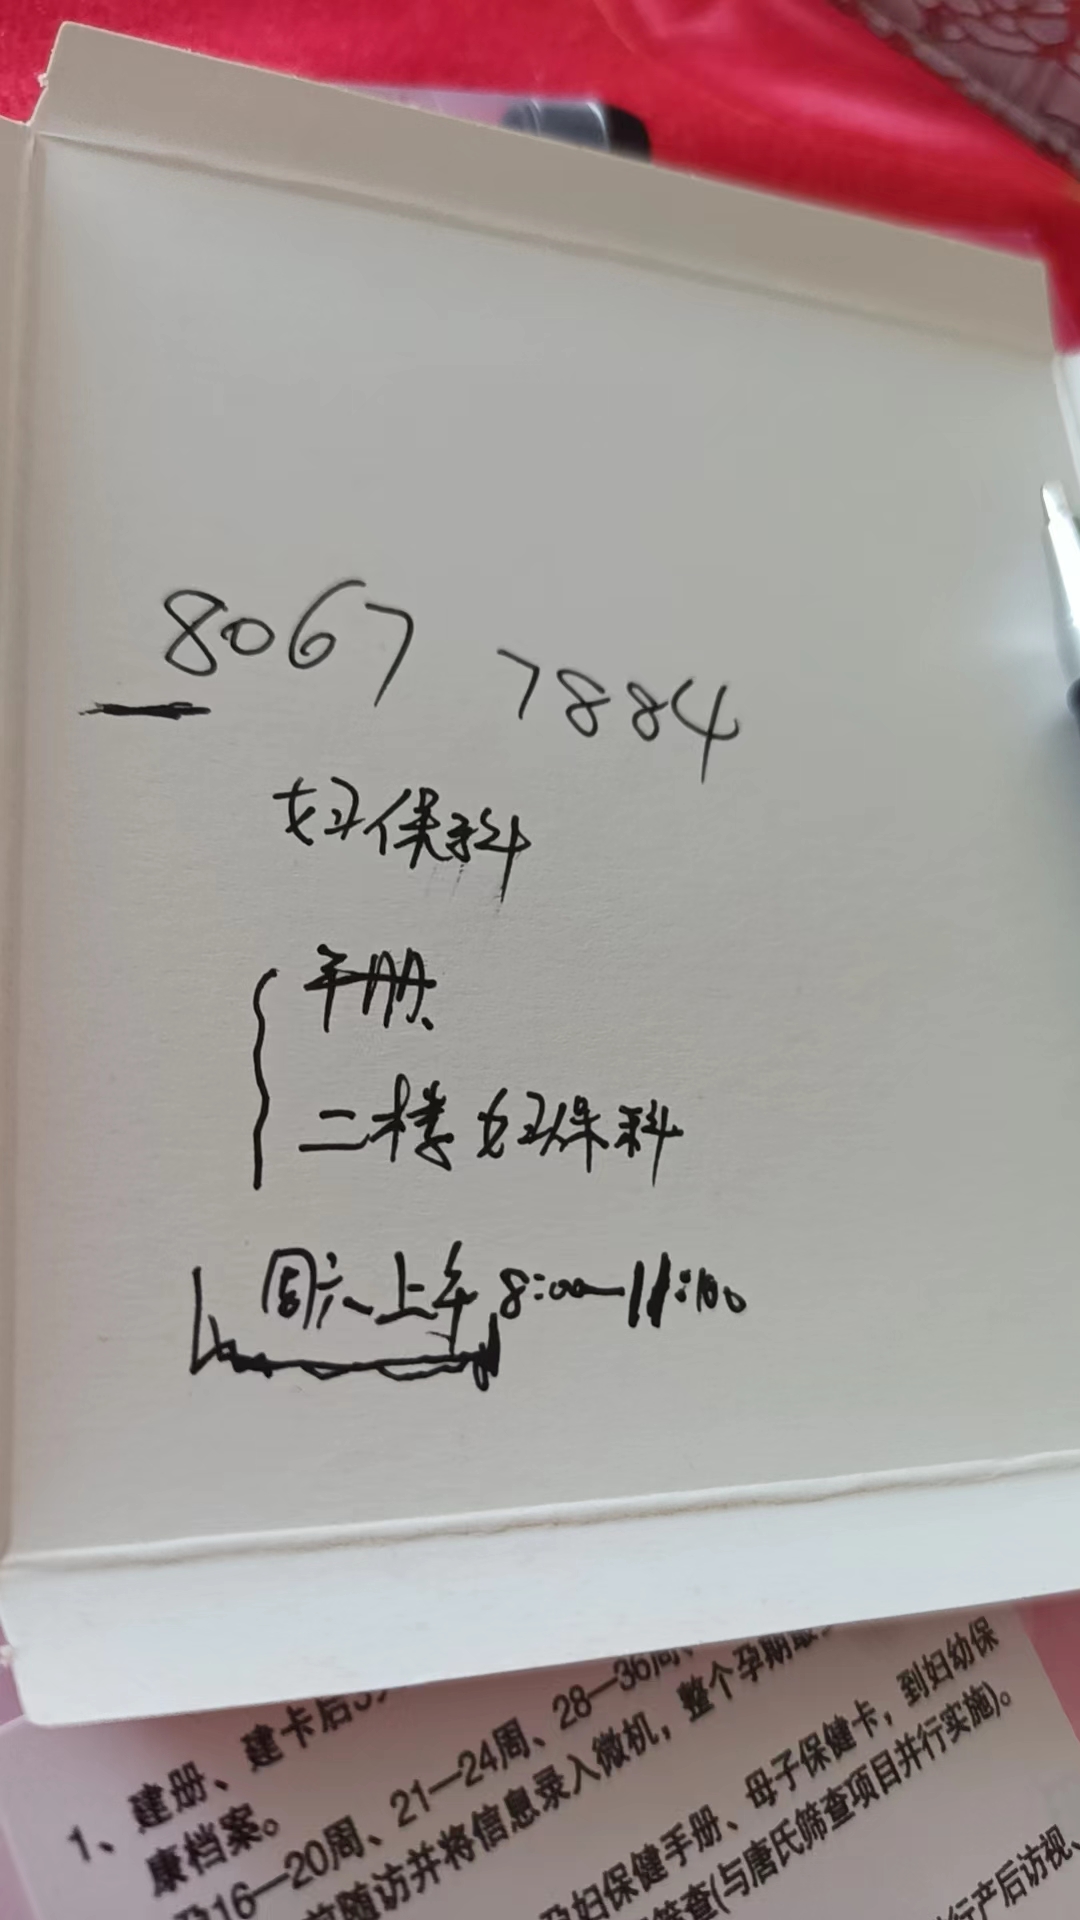 8067 7884
妇保科
手册
二楼 妇保科
周六上午 8:00—11:00
1、建册、建卡后3
康档案。
16—20周、21—24周、28—36周、
前随访并将信息录入微机，整个孕期最
孕妇保健手册、母子保健卡，到妇幼保
筛查(与唐氏筛查项目并行实施)。
行产后访视、